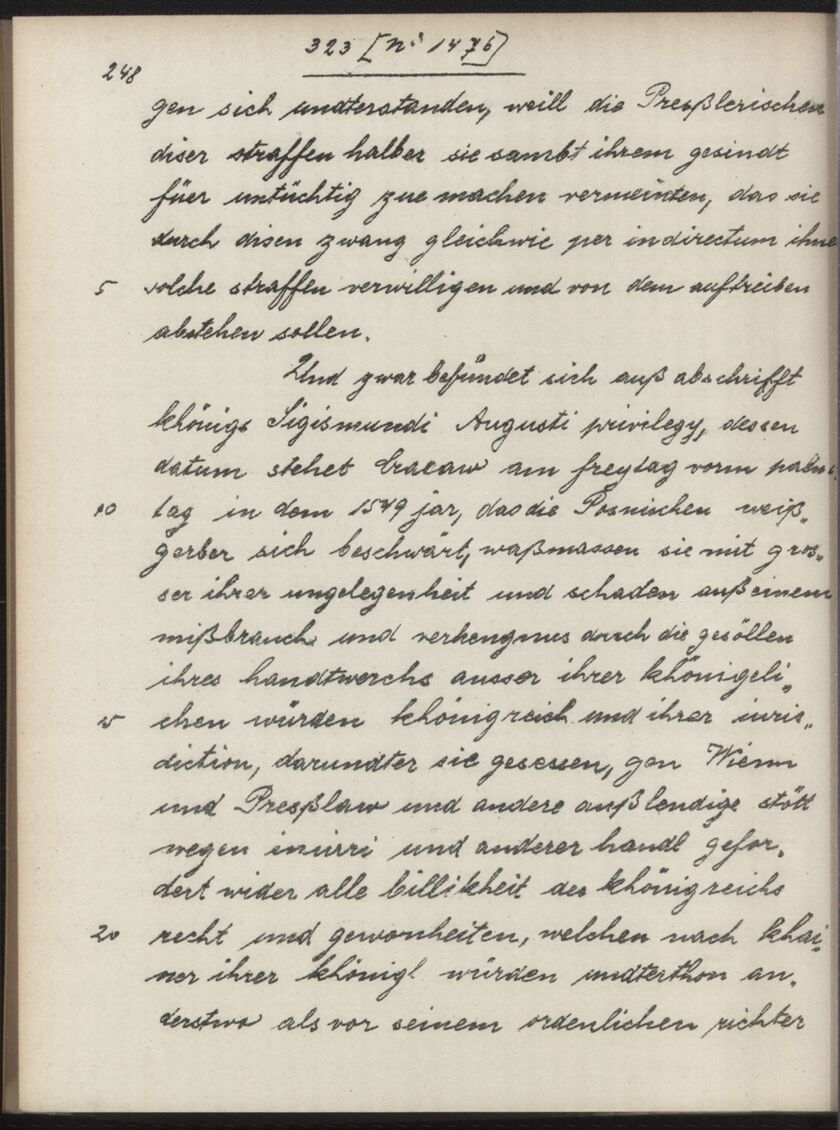 323 [No 1476]
248
gen sich undterstanden, weill die Preßlerischen
diser straffen halber sie sambt ihrem gesindt
füer untüchtig zue machen vermeinten, das sie
durch disen zwang gleichwie per indirectum ihne
5 solche straffen verwilligen und von dem auftreiben
abstehen sollen.
Und zwar befündet sich auß abschrifft
khönigs Sigismundi Augusti privilegy, dessen
datum stehet Cracaw am freytag vorm palm
10 tag in dem 1549 jar, das die Posnischen weiß„
gerber sich beschwärt, waßmassen sie mit gros„
ser ihrer ungelegenheit und schaden auß einem
mißbrauch und verhengnus durch die gesöllen
ihres handtwerchs ausser ihrer khönigeli„
15 chen würden khönigreich und ihrer iuris„
diction, darundter sie gesessen, gen Wienn
und Preßlaw und andere außlendige stött
wegen iniurri und anderer handl gefor„
dert wider alle billikheit des khönigreichs
20 recht und gewonheiten, welchen nach khai„
ner ihrer khönigl würden undterthon an„
derstwo als vor seinem ordenlichen richter